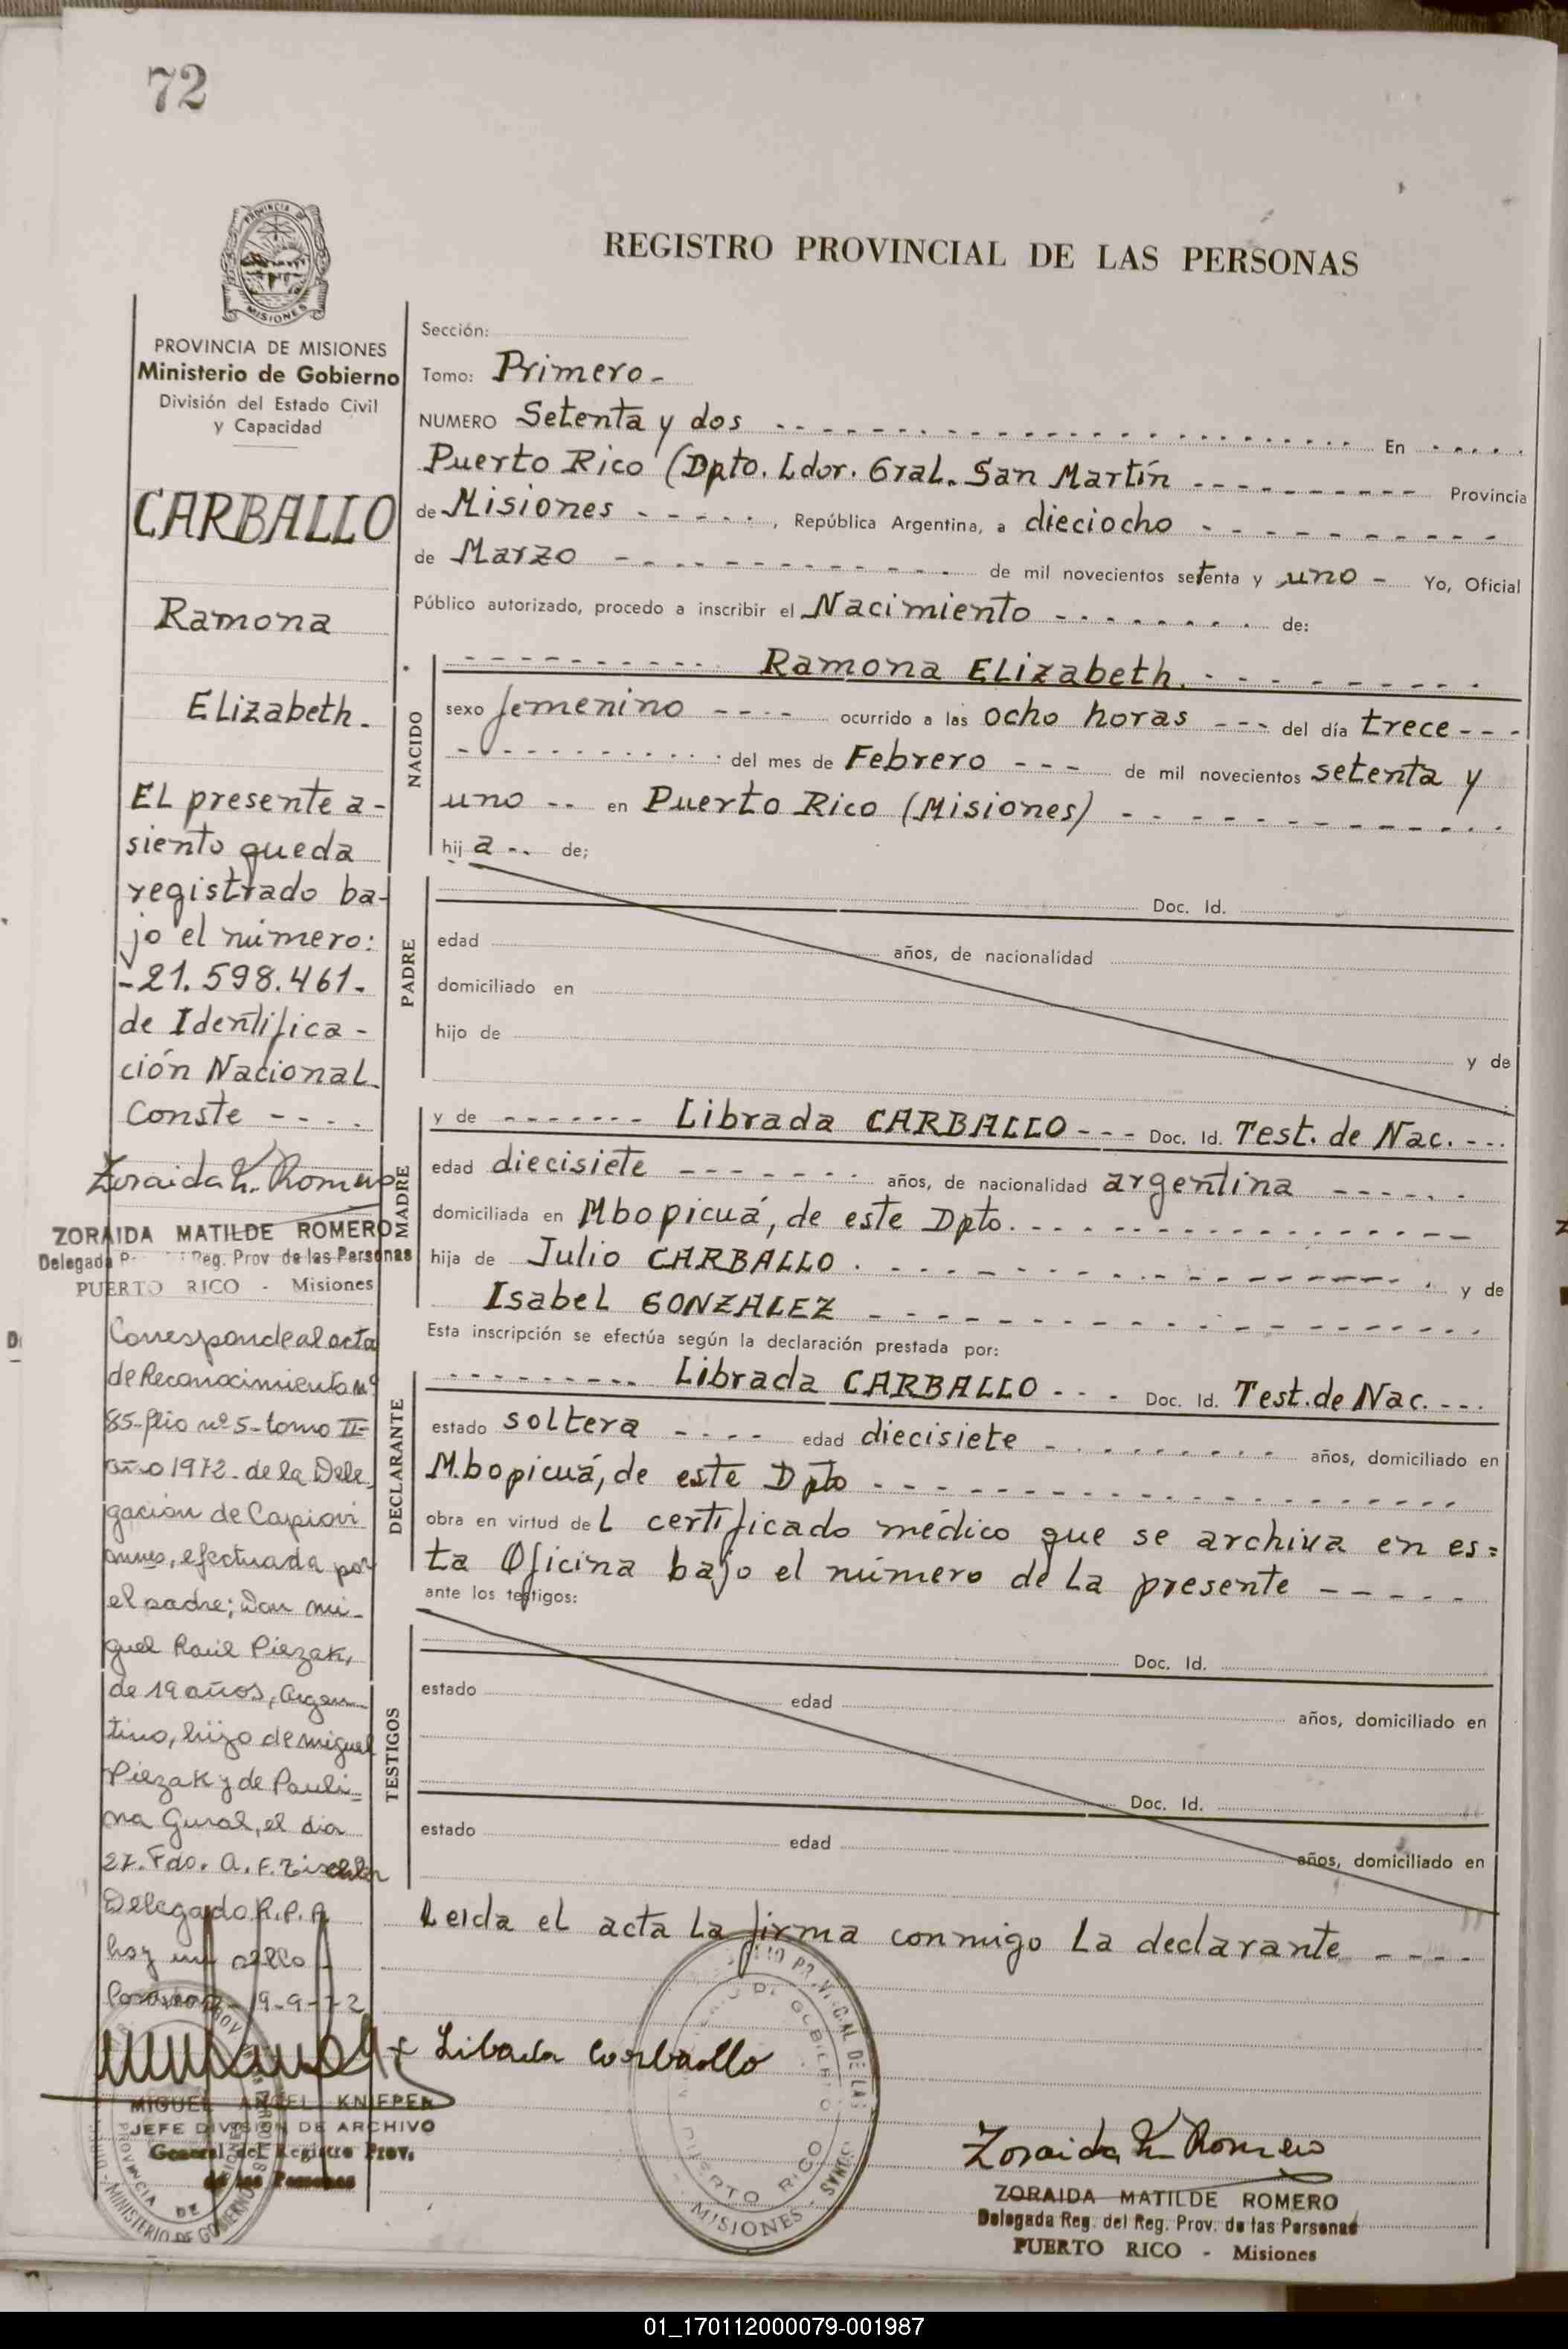 72
PROVINCIA DE
MISIONES
PROVINCIA DE MISIONES
Ministerio de Gobierno
División del Estado Civil
y Capacidad
CARBALLO
Ramona
Elizabeth.
El presente a-
siento queda
registrado ba-
jo el número:
-21.598.461.
de Identifica-
ción Nacional.
Conste - - - -
Zoraida M. Romero
ZORAIDA MATILDE ROMERO
Delegada Reg. Prov de las Personas
PUERTO RICO - Misiones
Corresponde al acta
de Reconocimiento nº
85-flio nº 5-tomo II-
año 1972. de la Dele
gación de Capiovi
mnes, efectuada por
el padre; Don mi-
guel Raúl Piezak,
de 19 años, Argen-
tino, hijo de miguel
Piezak y de Pauli=
na Gural, el dia
27. Fdo. A. F.
Delegado R.P.P.
hay un sello
19-9-72
MIGUEL ANGEL KNIEPER
JEFE DIVISION DE ARCHIVO
General del Registro Prov.
de las Personas
REGISTRO PROVINCIAL DE LAS PERSONAS
Sección:
Tomo: Primero-
NUMERO Setenta y dos En
Puerto Rico (Dpto. Ldor. Gral. San Martín Provincia
de Misiones , República Argentina, a dieciocho
de Marzo de mil novecientos setenta y uno - Yo, Oficial
Público autorizado, procedo a inscribir el Nacimiento de:
NACIDO
Ramona Elizabeth.
sexo femenino ocurrido a las ocho horas del día trece
del mes de Febrero de mil novecientos setenta y
uno en Puerto Rico (Misiones)
hija de;
PADRE
Doc. Id.
edad años, de nacionalidad
domiciliado en
hijo de y de
MADRE
y de Librada CARBALLO Doc. Id. Test. de Nac.
edad diecisiete años, de nacionalidad argentina
domiciliada en Mbopicuá, de este Dpto.
hija de Julio CARBALLO y de
Isabel GONZALEZ
Esta inscripción se efectúa según la declaración prestada por:
DECLARANTE
Librada CARBALLO Doc. Id. Test. de Nac.
estado soltera edad diecisiete años, domiciliado en
Mbopicuá, de este Dpto
obra en virtud del certificado médico que se archiva en es=
ta Oficina bajo el número de la presente
ante los testigos:
TESTIGOS
Doc. Id.
estado edad años, domiciliado en
Doc. Id.
estado edad años, domiciliado en
Leida el acta la firma conmigo la declarante
Librada Carballo
PUERTO RICO
MISIONES
Zoraida M. Romero
ZORAIDA MATILDE ROMERO
Delegada Reg. del Reg. Prov. de las Personas
PUERTO RICO - Misiones
01_170112000079-001987